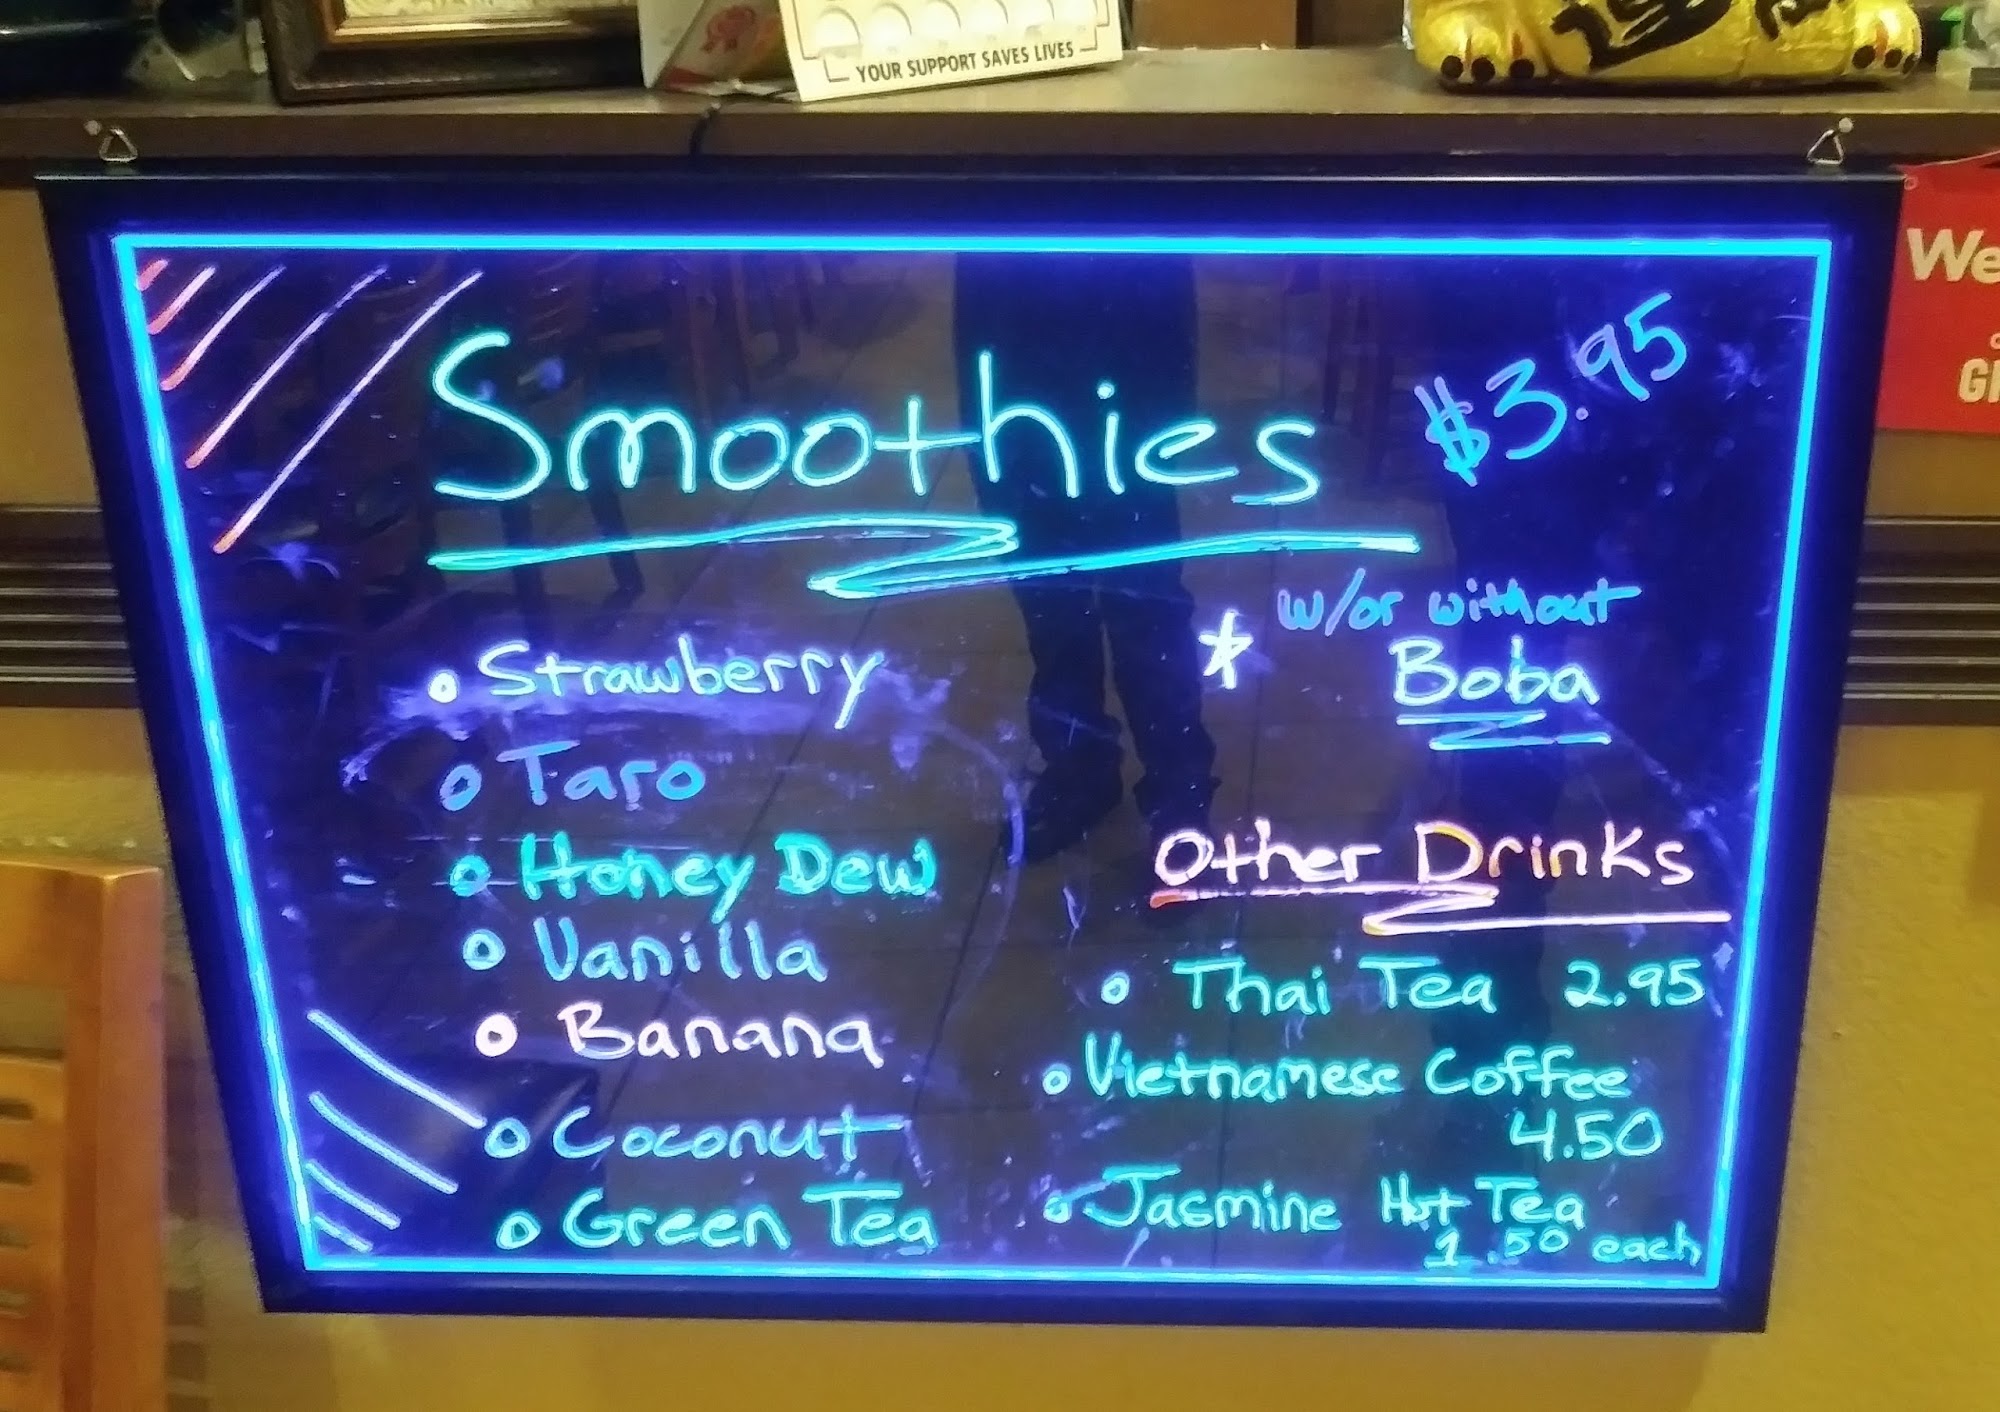 YOUR SUPPORT SAVES LIVES
We
GI
Smoothies
$3.95
w/or without
* Boba
Strawberry
Taro
Honey Dew
Vanilla
Banana
Coconut
Green Tea
Other Drinks
Thai Tea 2.95
Vietnamese Coffee
4.50
Jasmine Hot Tea
1.50 each